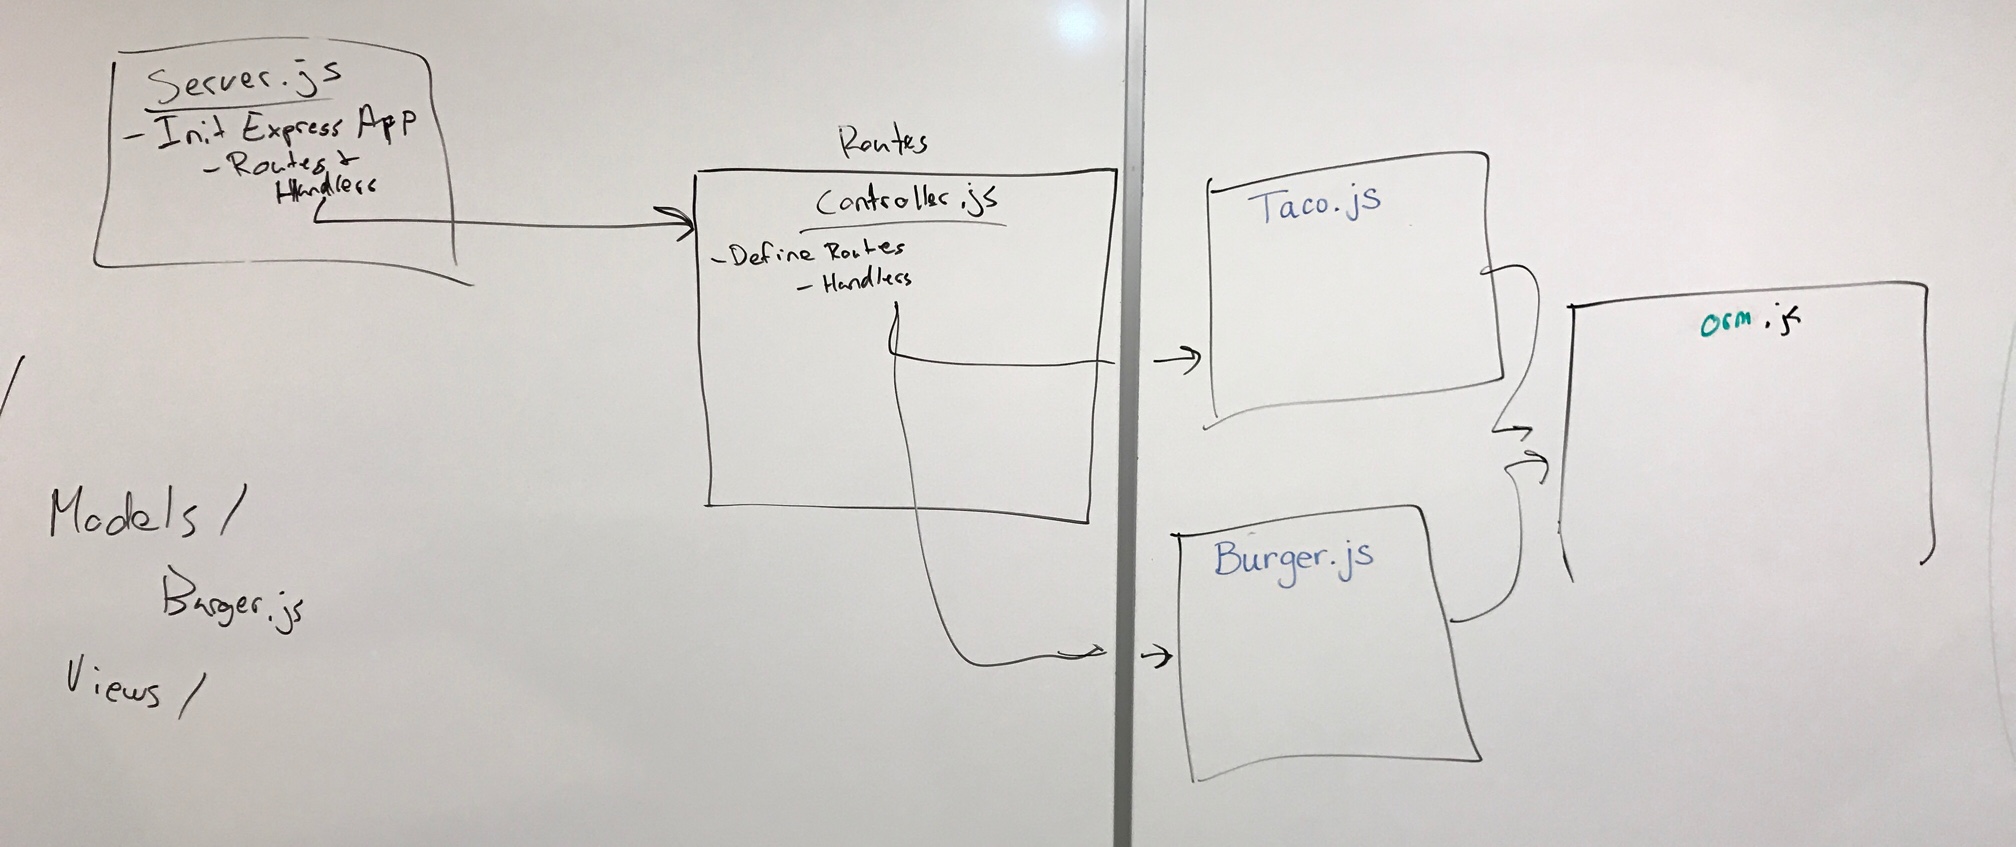 Server.js
- Init Express App
- Routes +
Handlers
Routes
Controller.js
- Define Routes
- Handlers
Taco.js
Burger.js
orm.js
Models /
Burger.js
Views /